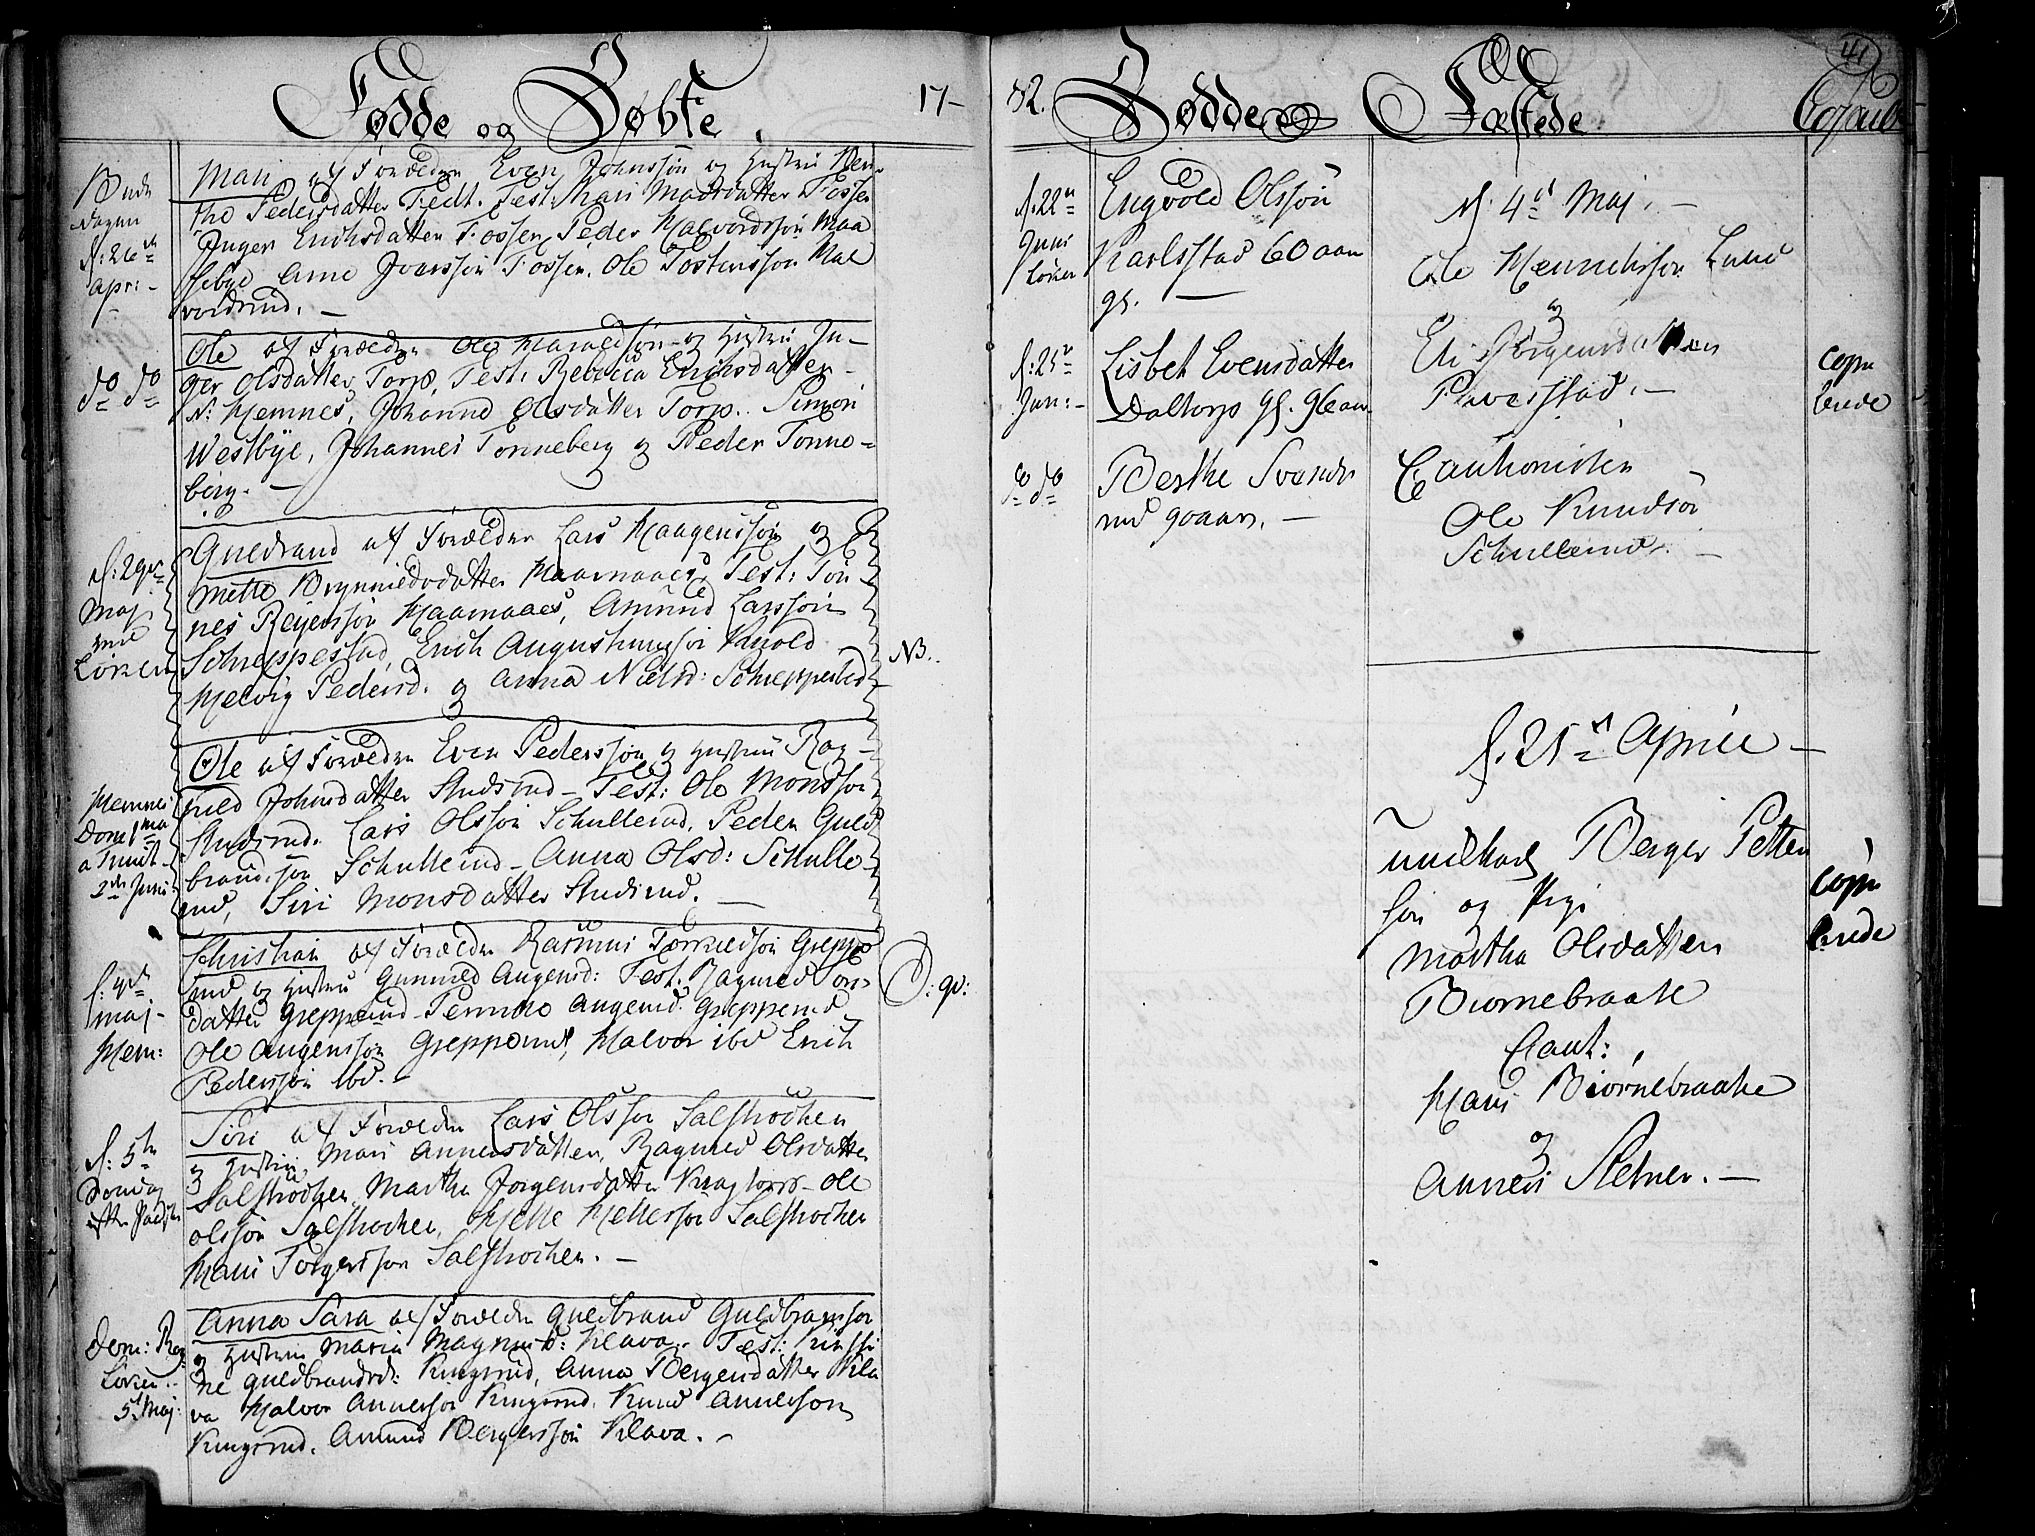 Fødde og Døbte.
17-
Bede
dagen
d: 26de
apr: -
Mari af Forældre Even Johnssøn og Hustru Ber-
the Pedersdatter Fedt. Test: Kari Madsdatter Fosser
Inger Erichsdatter Fosser, Peder Halvordssøn Maa
sebye Arne Joensøn Fosser. Ole Tostenssøn Hal
vordrud. -
do do
Ole af Forældre Ole Haraldssøn og Hustru In-
ger Olsdatter Torp, Test: Rebecca Erichsdatter
N: Hemnes, Johanne Olsdatter Torp. Simon
Westbye, Johannes Tonneberg og Peder Tonne-
berg. -
d: 29de
Maj
ved
Løken
Guldrand af Forældre Lars Haagenssøn og
Mette Brynnildsdatter Haarnaaes, Test: Tøn-
nes Reyerssøn Haarnaaes, Amund Larssøn
Schreppestad, Erich Augustinussøn Krold
Helvig Pedersd. og Anna Nielsd: Schreppestad
NB.
Hemnes
Dom 1ma
a Trinit
2de Juni
Ole af Forældre Even Pederssøn og Hustru Rag-
nild Johnsdatter Studsrud - Test: Ole Monssøn
Studsrud. Lars Olssøn Schullerud. Peder Guld
brandssøn Schullerud - Anna Olsd: Schulle
rud, Siri Monsdatter Studsrud. -
d: 4de
Maj -
Hem:
Christian af Forældre Rasmus Tørrildssøn Greppe
rud og Hustru Gunnild Augensd: Test. Ragnild Tors-
datter Grepperud Pernille Augensd. Grepperud
Ole Augenssøn Grepperud, Halvor ibd Erich
Pederssøn ibd. -
d: 5te
Søndag
efter Paaske
Siri af Forældre Lars Olssøn Salshochen
og Hustru Mari Annersdatter, Ragnild Olsdatter
Salshochen Martha Jørgensdatter Kragtorp - Ole
Olssøn Salshochen, Kjelle Kjellerssøn Salshochen
Hans Torgerssøn Salshochen. -
Dom: Rog:
Løken
5 Maj:
Anna Sara af Forældre Guldbrand Guldbranssøn
og Hustru Maria Magnusd: Klava. Test: Kirsti
ne Guldbrandsd: Kingsrud, Anna Bergersdatter Kla
va Halvor Annerssøn Kingsrud. Knud Annerssøn
Kingsrud. Amund Bergerssøn Klava. -
82.
Dødde
Fæstede
Copul
41
d: 22de
Juni
Løken
Engvold Olssøn
Karlsstad 60 aar
gl. -
d: 25de
Jun: -
Lisbet Evensdatter
Daltorp gl. 96 aar
do do
Berthe Svends
rud 90 aar. -
d. 4de Maj. -
Ole Henrichssøn Lund
og
Eli Jørgensdatter
Paverstad. -
Cautionisten
Ole Knudsør
Schullerud. -
Copu
lerede
d. 21de April -
Berger Petter
søn og Pige
Martha Olsdatter
Biørnebraate
Caut:
Hans Biørnebraate
og
Anners Stetner. -
Copu
lerede